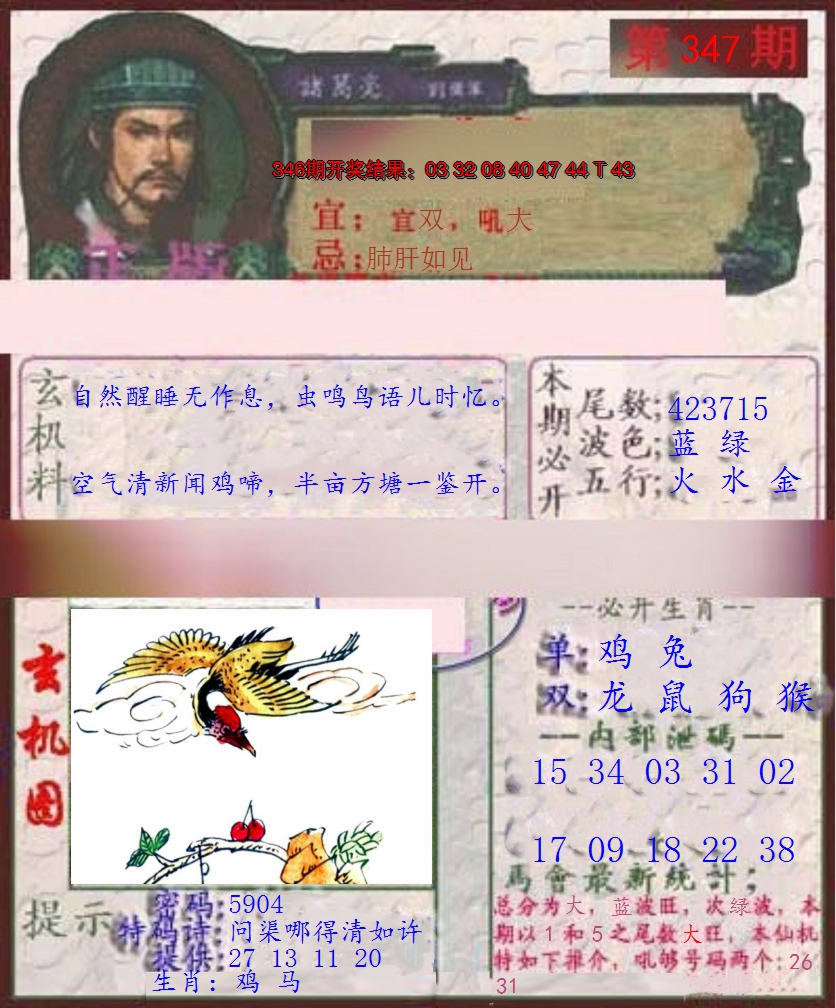 第 347 期
諸葛亮
346期开奖结果：03 32 08 40 47 44 T 43
宜；宜双，吼大
忌；肺肝如见
正版
玄机料
自然醒睡无作息，虫鸣鸟语儿时忆。
空气清新闻鸡啼，半亩方塘一鉴开。
本期必开
尾数;423715
波色;蓝 绿
五行;火 水 金
玄机图
--必开生肖--
单:鸡 兔
双:龙 鼠 狗 猴
—内部泄碼—
15 34 03 31 02
17 09 18 22 38
馬會最新統計；
总分为大，蓝波旺，次绿波，本
期以1和5之尾数大旺，本仙机
特如下推介，吼够号码两个:26
31
提示
密码:5904
特码诗:问渠哪得清如许
提供:27 13 11 20
生肖：鸡 马